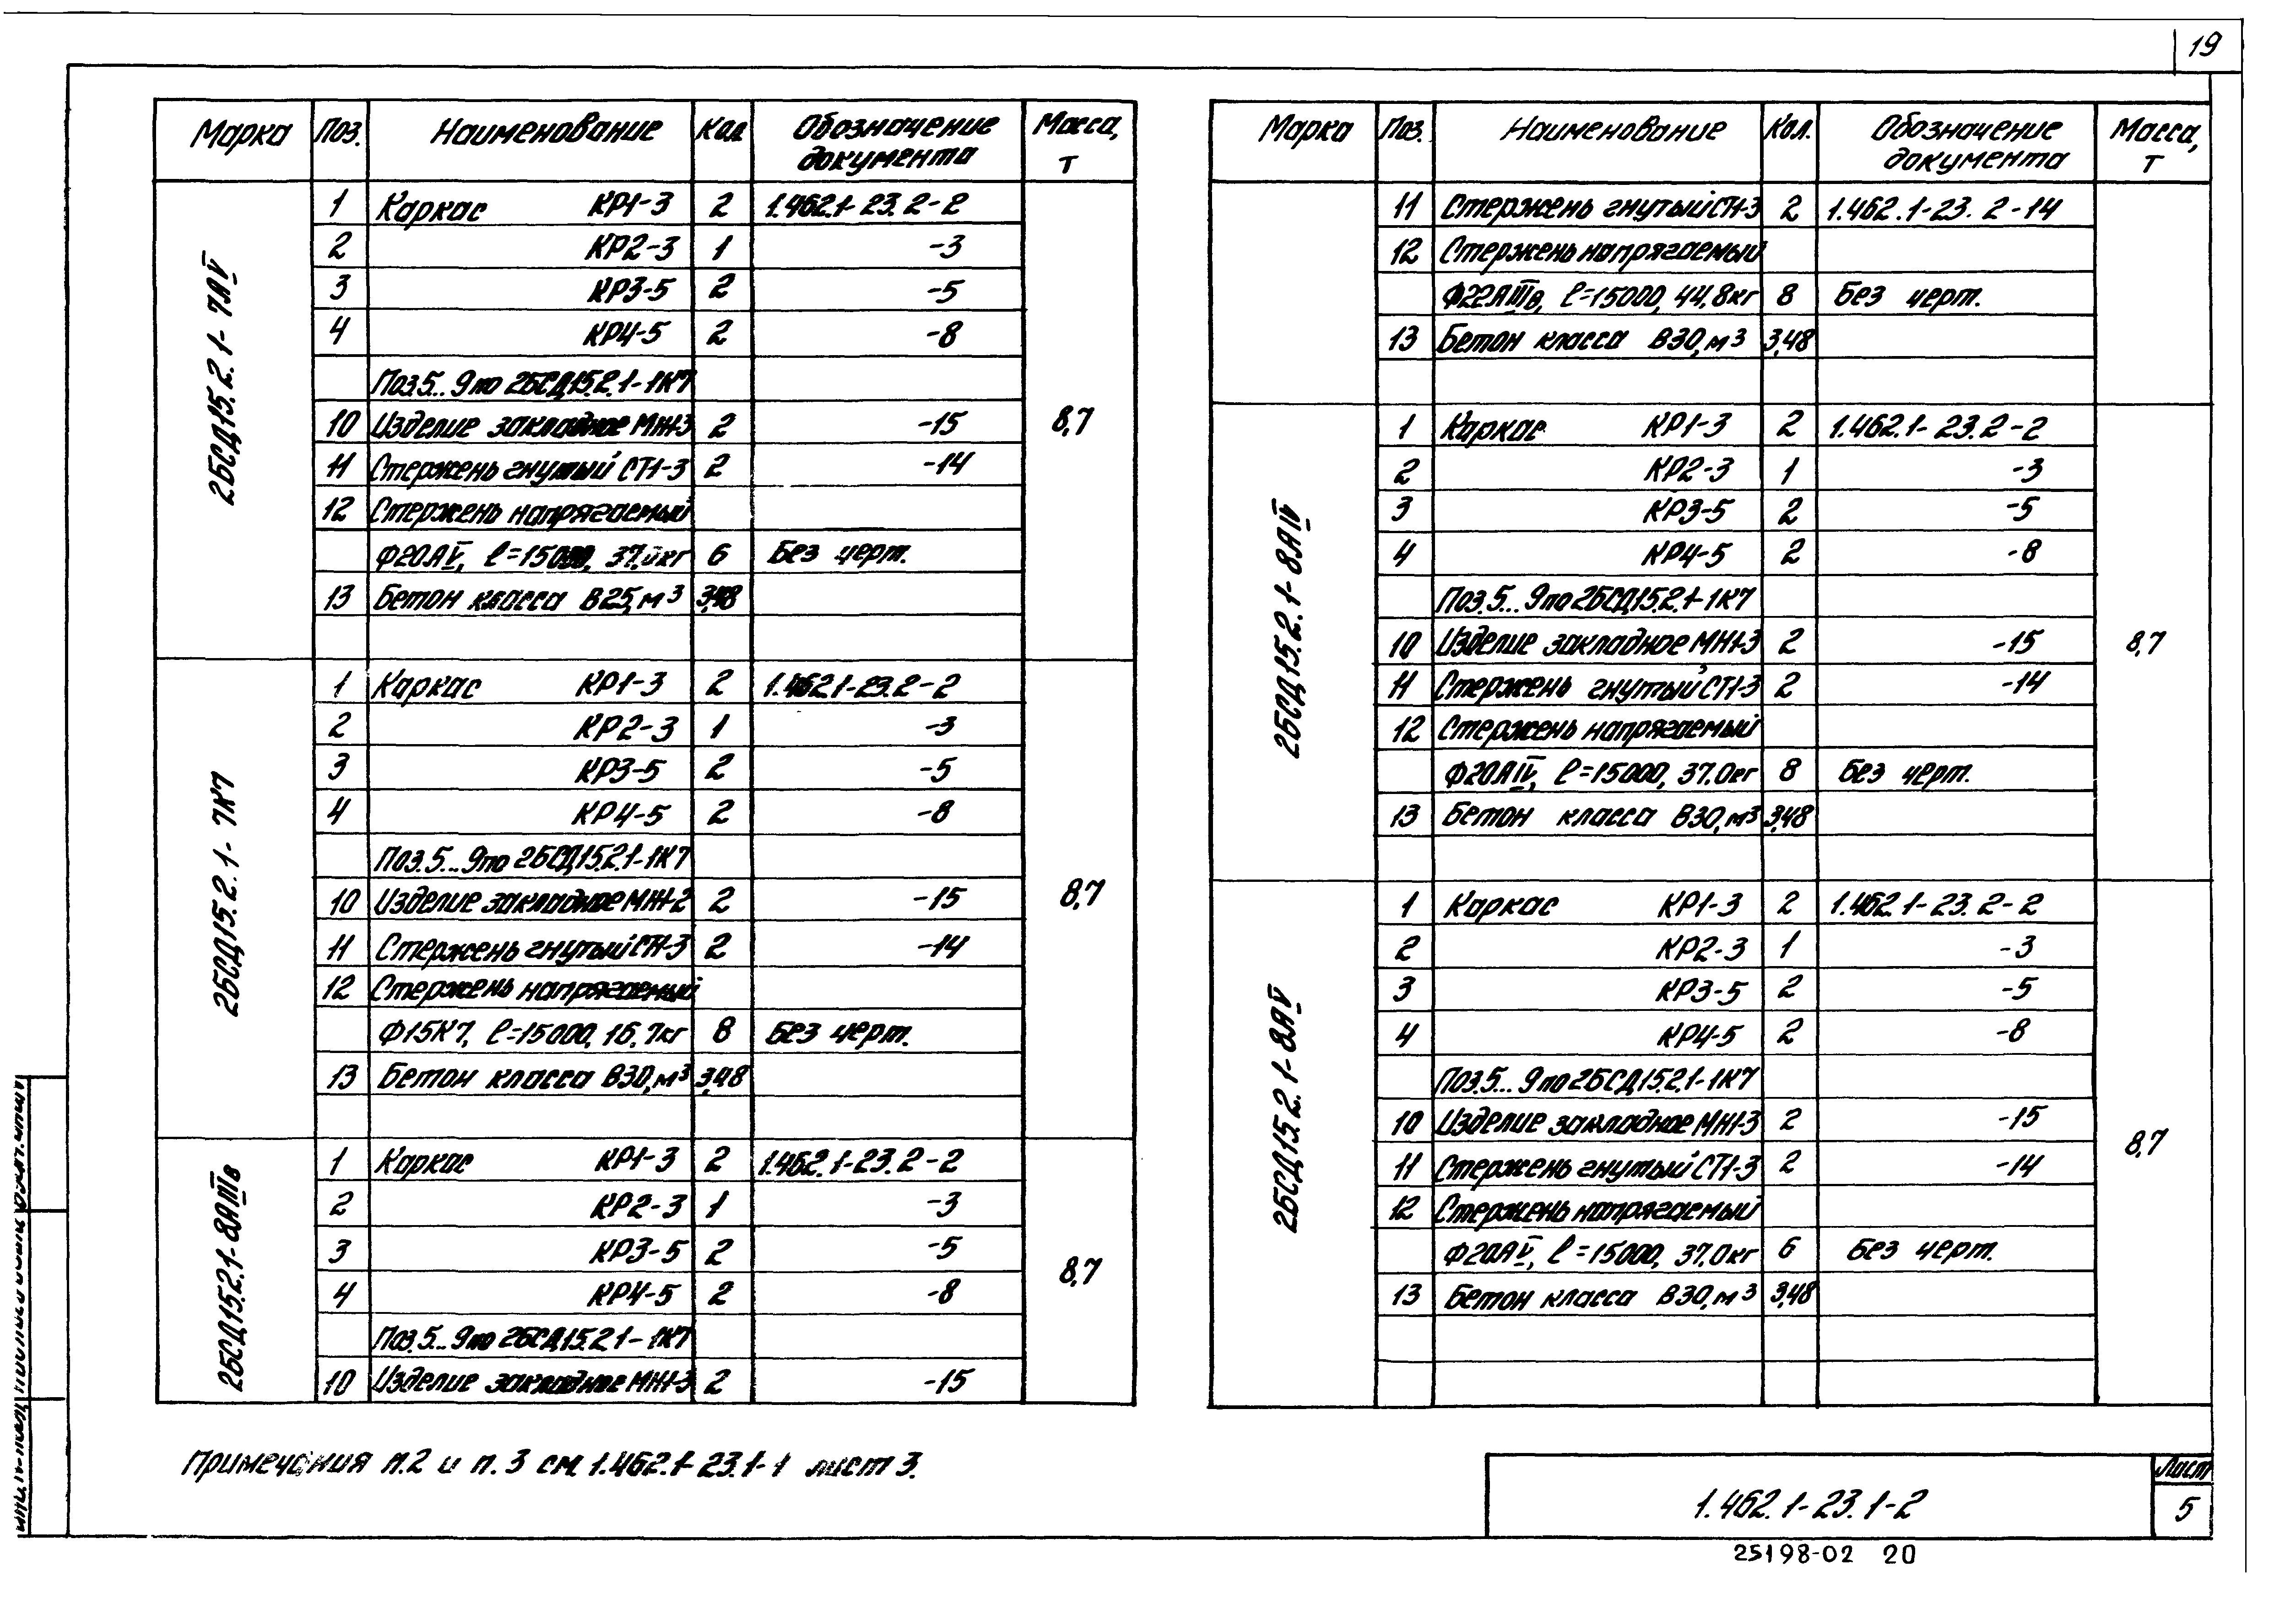 19
Марка Поз. Наименование Кол Обозначение документа Масса, т
2БСД15.2.1-7АV
1 Каркас КР1-3 2 1.462.1-23.2-2
2 КР2-3 1 -3
3 КР3-5 2 -5
4 КР4-5 2 -8
Поз.5...9 по 2БСД15.2.1-1К7
10 Изделие закладное МН1-3 2 -15
8,7
11 Стержень гнутый СТ1-3 2 -14
12 Стержень напрягаемый
Ф20АV, ℓ=15000, 37,0кг 6 Без черт.
13 Бетон класса В25, м³ 3,48
2БСД15.2.1-7К7
1 Каркас КР1-3 2 1.462.1-23.2-2
2 КР2-3 1 -3
3 КР3-5 2 -5
4 КР4-5 2 -8
Поз.5...9 по 2БСД15.2.1-1К7
10 Изделие закладное МН1-2 2 -15
8,7
11 Стержень гнутый СТ1-3 2 -14
12 Стержень напрягаемый
Ф15К7, ℓ=15000, 16,7кг 8 Без черт.
13 Бетон класса В30, м³ 3,48
2БСД15.2.1-8АIIIв
1 Каркас КР1-3 2 1.462.1-23.2-2
2 КР2-3 1 -3
3 КР3-5 2 -5
8,7
4 КР4-5 2 -8
Поз.5...9 по 2БСД15.2.1-1К7
10 Изделие закладное МН1-3 2 -15
Марка Поз. Наименование Кол. Обозначение документа Масса, т
11 Стержень гнутый СТ1-3 2 1.462.1-23.2-14
12 Стержень напрягаемый
Ф22АIIIв, ℓ=15000, 44,8кг 8 Без черт.
13 Бетон класса В30, м³ 3,48
2БСД15.2.1-8АIV
1 Каркас КР1-3 2 1.462.1-23.2-2
2 КР2-3 1 -3
3 КР3-5 2 -5
4 КР4-5 2 -8
Поз.5...9 по 2БСД15.2.1-1К7
10 Изделие закладное МН1-3 2 -15
8,7
11 Стержень гнутый СТ1-3 2 -14
12 Стержень напрягаемый
Ф20АIV, ℓ=15000, 37.0кг 8 Без черт.
13 Бетон класса В30, м³ 3,48
2БСД15.2.1-8АV
1 Каркас КР1-3 2 1.462.1-23.2-2
2 КР2-3 1 -3
3 КР3-5 2 -5
4 КР4-5 2 -8
Поз.5...9 по 2БСД15.2.1-1К7
10 Изделие закладное МН1-3 2 -15
8,7
11 Стержень гнутый СТ1-3 2 -14
12 Стержень напрягаемый
Ф20АV, ℓ=15000, 37.0кг 6 Без черт.
13 Бетон класса В30, м³ 3,48
Примечания п.2 и п.3 см. 1.462.1-23.1-1 лист 3.
1.462.1-23.1-2
Лист
5
25198-02 20